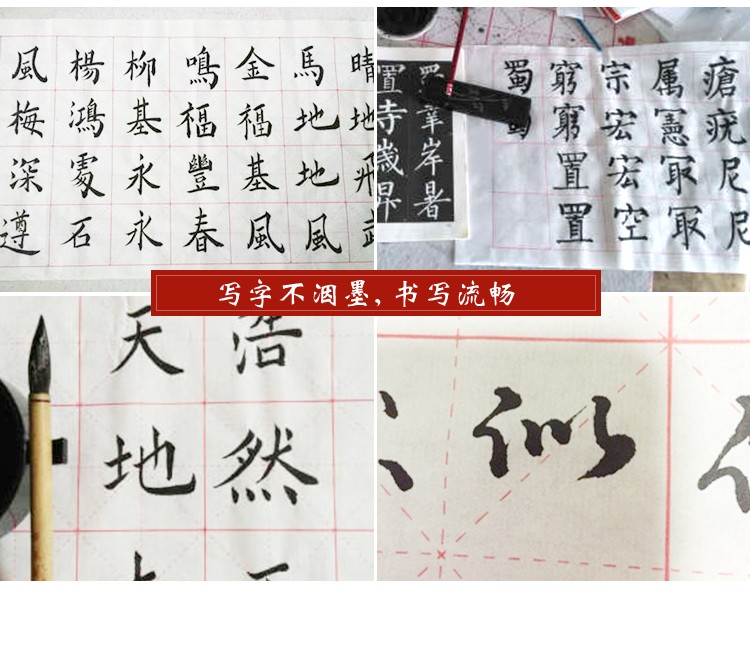 風楊柳鳴金馬晴
梅鴻基福福地地
深處永豐基地飛
遵石永春風風
蜀窮宗属瘡
窮宏憲疣
置宏取尼
置空取尼
置
寺
歲岸
暑
写字不洇墨,书写流畅
天浩
地然
似